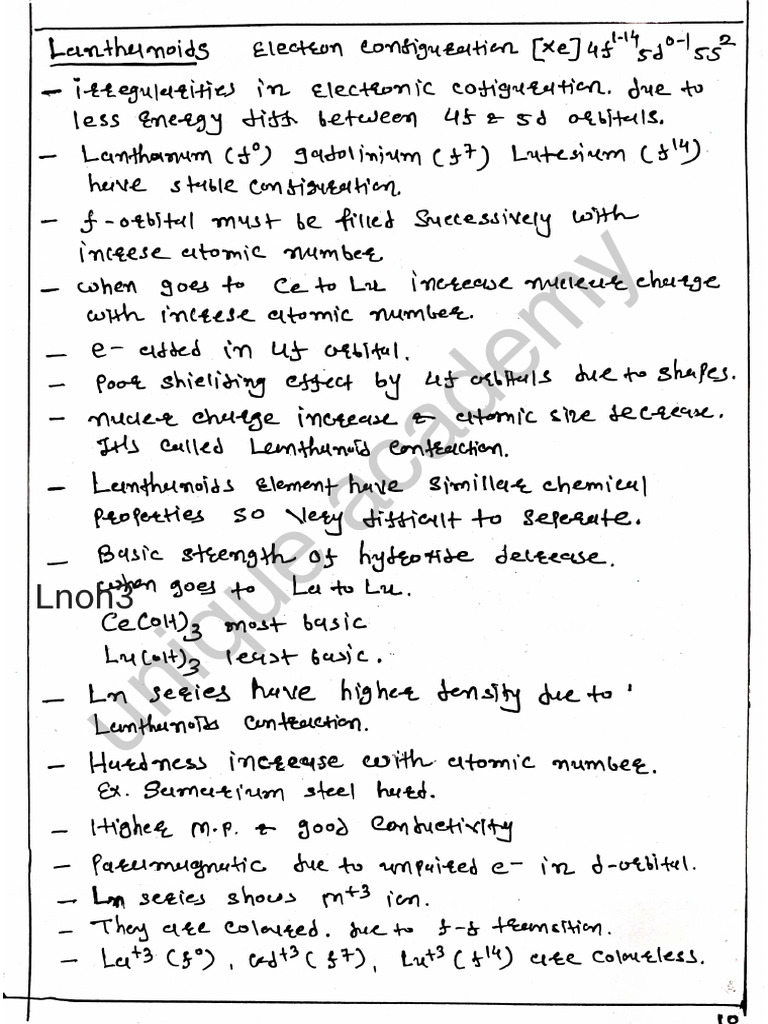 Lanthanoids Electron Configuration [xe] 4f¹⁻¹⁴ 5d⁰⁻¹ 5s²
- irregularities in electronic cofiguration. due to
less energy diff between 4f & 5d orbitals.
- Lanthanum (f⁰) gadolinium (f⁷) Lutesium (f¹⁴)
have stable configuration.
- f-orbital must be filled successively with
increese atomic number
- when goes to Ce to Lu increase nuclear charge
with increse atomic number.
- e- added in 4f orbital.
- Poor shielding effect by 4f orbitals due to shapes.
- nucler charge increase & atomic size decrease.
It's called Lanthanoid contraction.
- Lanthanoids Element have simillar chemical
properties so very difficult to seperate.
- Basic strength of hydroxide decrease.
when goes to La to Lu.
Lnoh3
Ce(OH)₃ most basic
Lu(OH)₃ least basic.
- Ln series have higher density due to
Lanthanoids contraction.
- Hardness increase with atomic number.
Ex. Samarium steel hard.
- Higher m.p. & good conductivity
- Paramagnatic due to unpaired e- in d-orbital.
- Ln series shows m⁺³ ion.
- They are coloured. due to f-f transition.
- La⁺³ (f⁰), Gd⁺³ (f⁷), Lu⁺³ (f¹⁴) are colourless.
unique academy
10